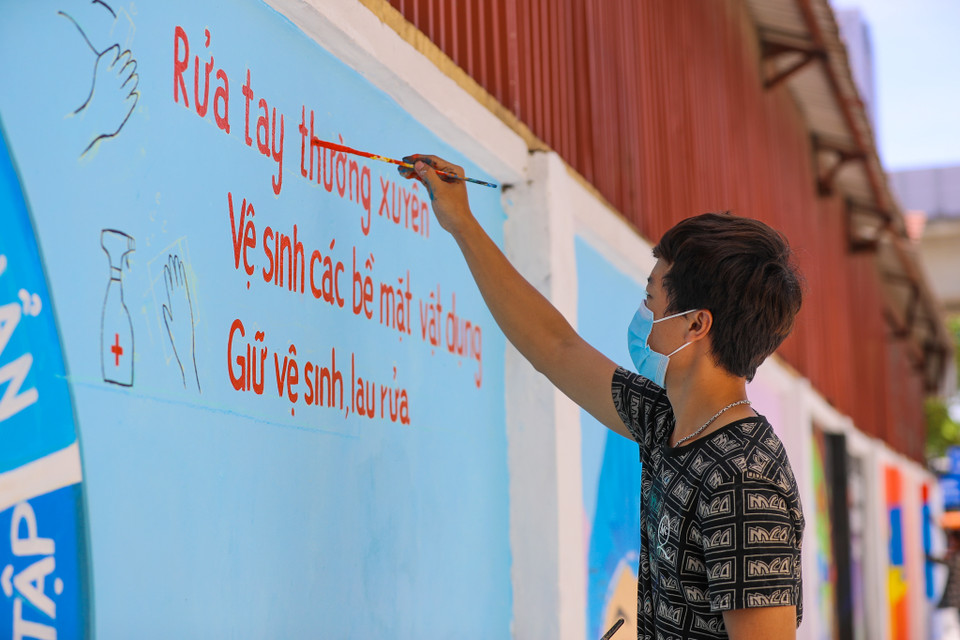 Rửa tay thường xuyên
Vệ sinh các bề mặt vật dụng
Giữ vệ sinh, lau rửa
TẬP
MCD